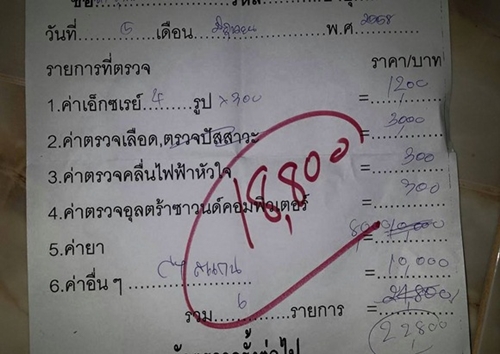 วันที่ 5 เดือน มิถุนายน พ.ศ 2558
รายการที่ตรวจ ราคา/บาท
1.ค่าเอ็กซเรย์ 4 รูป x300 = 1,200
2.ค่าตรวจเลือด,ตรวจปัสสาวะ = 3,000
3.ค่าตรวจคลื่นไฟฟ้าหัวใจ = 300
4.ค่าตรวจอุลตร้าซาวนด์คอมพิวเตอร์ = 300
18,800
5.ค่ายา = 10,000
6.ค่าอื่น ๆ = 10,000
รวม 6 รายการ = 24,800
22,800